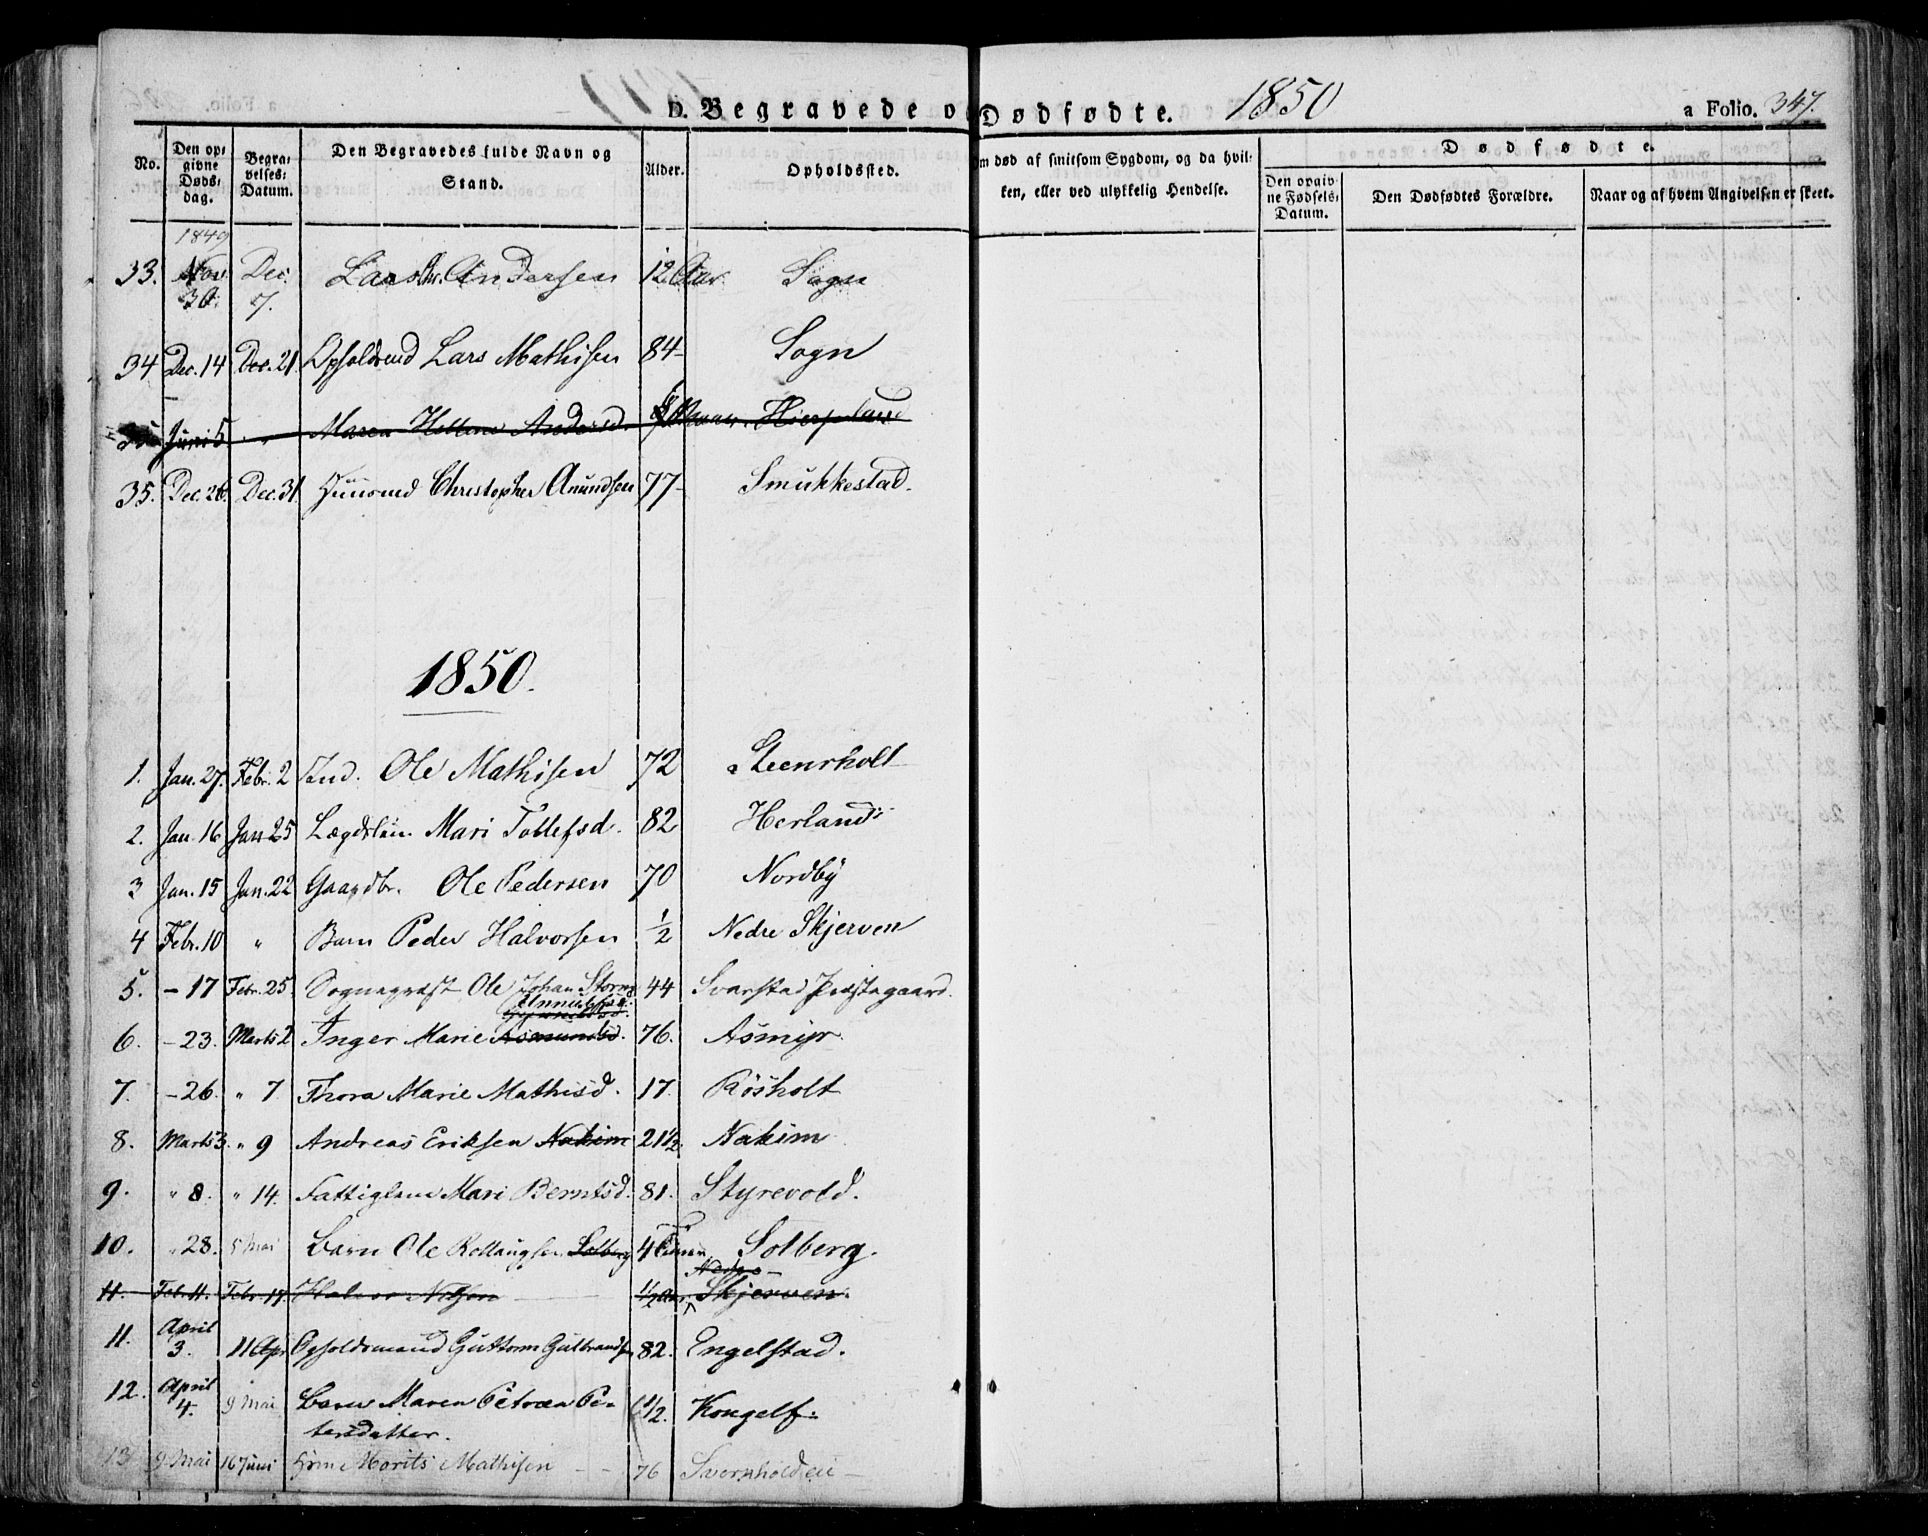 D. Begravede og Dødfødte. 1850 a Folio. 347.
No. Den opgivne Dødsdag. Begravelses-Datum. Den Begravedes fulde Navn og Stand. Alder. Opholdssted. Om død af smitsom Sygdom, og da hvilken, eller ved ulykkelig Hendelse. Dødfødte.
Den opgivne Fødsels-Datum. Den Dødfødtes Forældre. Naar og af hvem Angivelsen er skeet.
1849
33. Nov. 30. Dec. 7. Lars Andersen 12 Aar. Sogn
34 Dec. 14 Dec. 21. Lars Mathisen 84 - Sogn
35 Juni 5 " Maren Hellene Andersd.
35. Dec. 26. Dec. 31. Huusmd Christopher Anundsen 77 - Smukkestad.
1850.
1. Jan. 27. Febr. 2 Ind. Ole Mathisen 72 Steenrholt
2. Jan. 16 Jan 25 Lægdslem Mari Tollefsd. 82 Herland
3 Jan. 15 Jan. 22 Gaardbr. Ole Pedersen 70 Nordby
4 Febr. 10 " Barn Peder Halvorsen 1/2 Nedre Skjerven
5. - 17 Febr. 25. Sognepræst Ole Johan Storm 44 Svarstad Præstegaard.
6. - 23. Marts 2 Inger Marie Asmundsd. 76. Asmyr
7. - 26. " 7 Thora Marie Mathisd. 17. Røsholt
8. Marts 3. " 9 Andreas Eriksen Nakim 21 1/2. Nakim
9. " 8. " 14. Fattiglem Mari Berntsd. 81. Styrevold.
10. " 28. 5 Mai Barn Ole Rollaugsen Solberg 4 Timer Solberg.
11. Febr. 11. Febr. 17. Halvor 1/2 Aar. Nedre Skjerven.
11. April 3. 11 Apr Opholdsmand Guttorm Gulbrands 82. Engelstad.
12. April 4. 9 Mai Barn Maren Petræa Pe-
tersdatter. 1/2. Kongelf:
13 9 Mai 16 Juni Morits Mathisen - - 76 Svornholdeie -